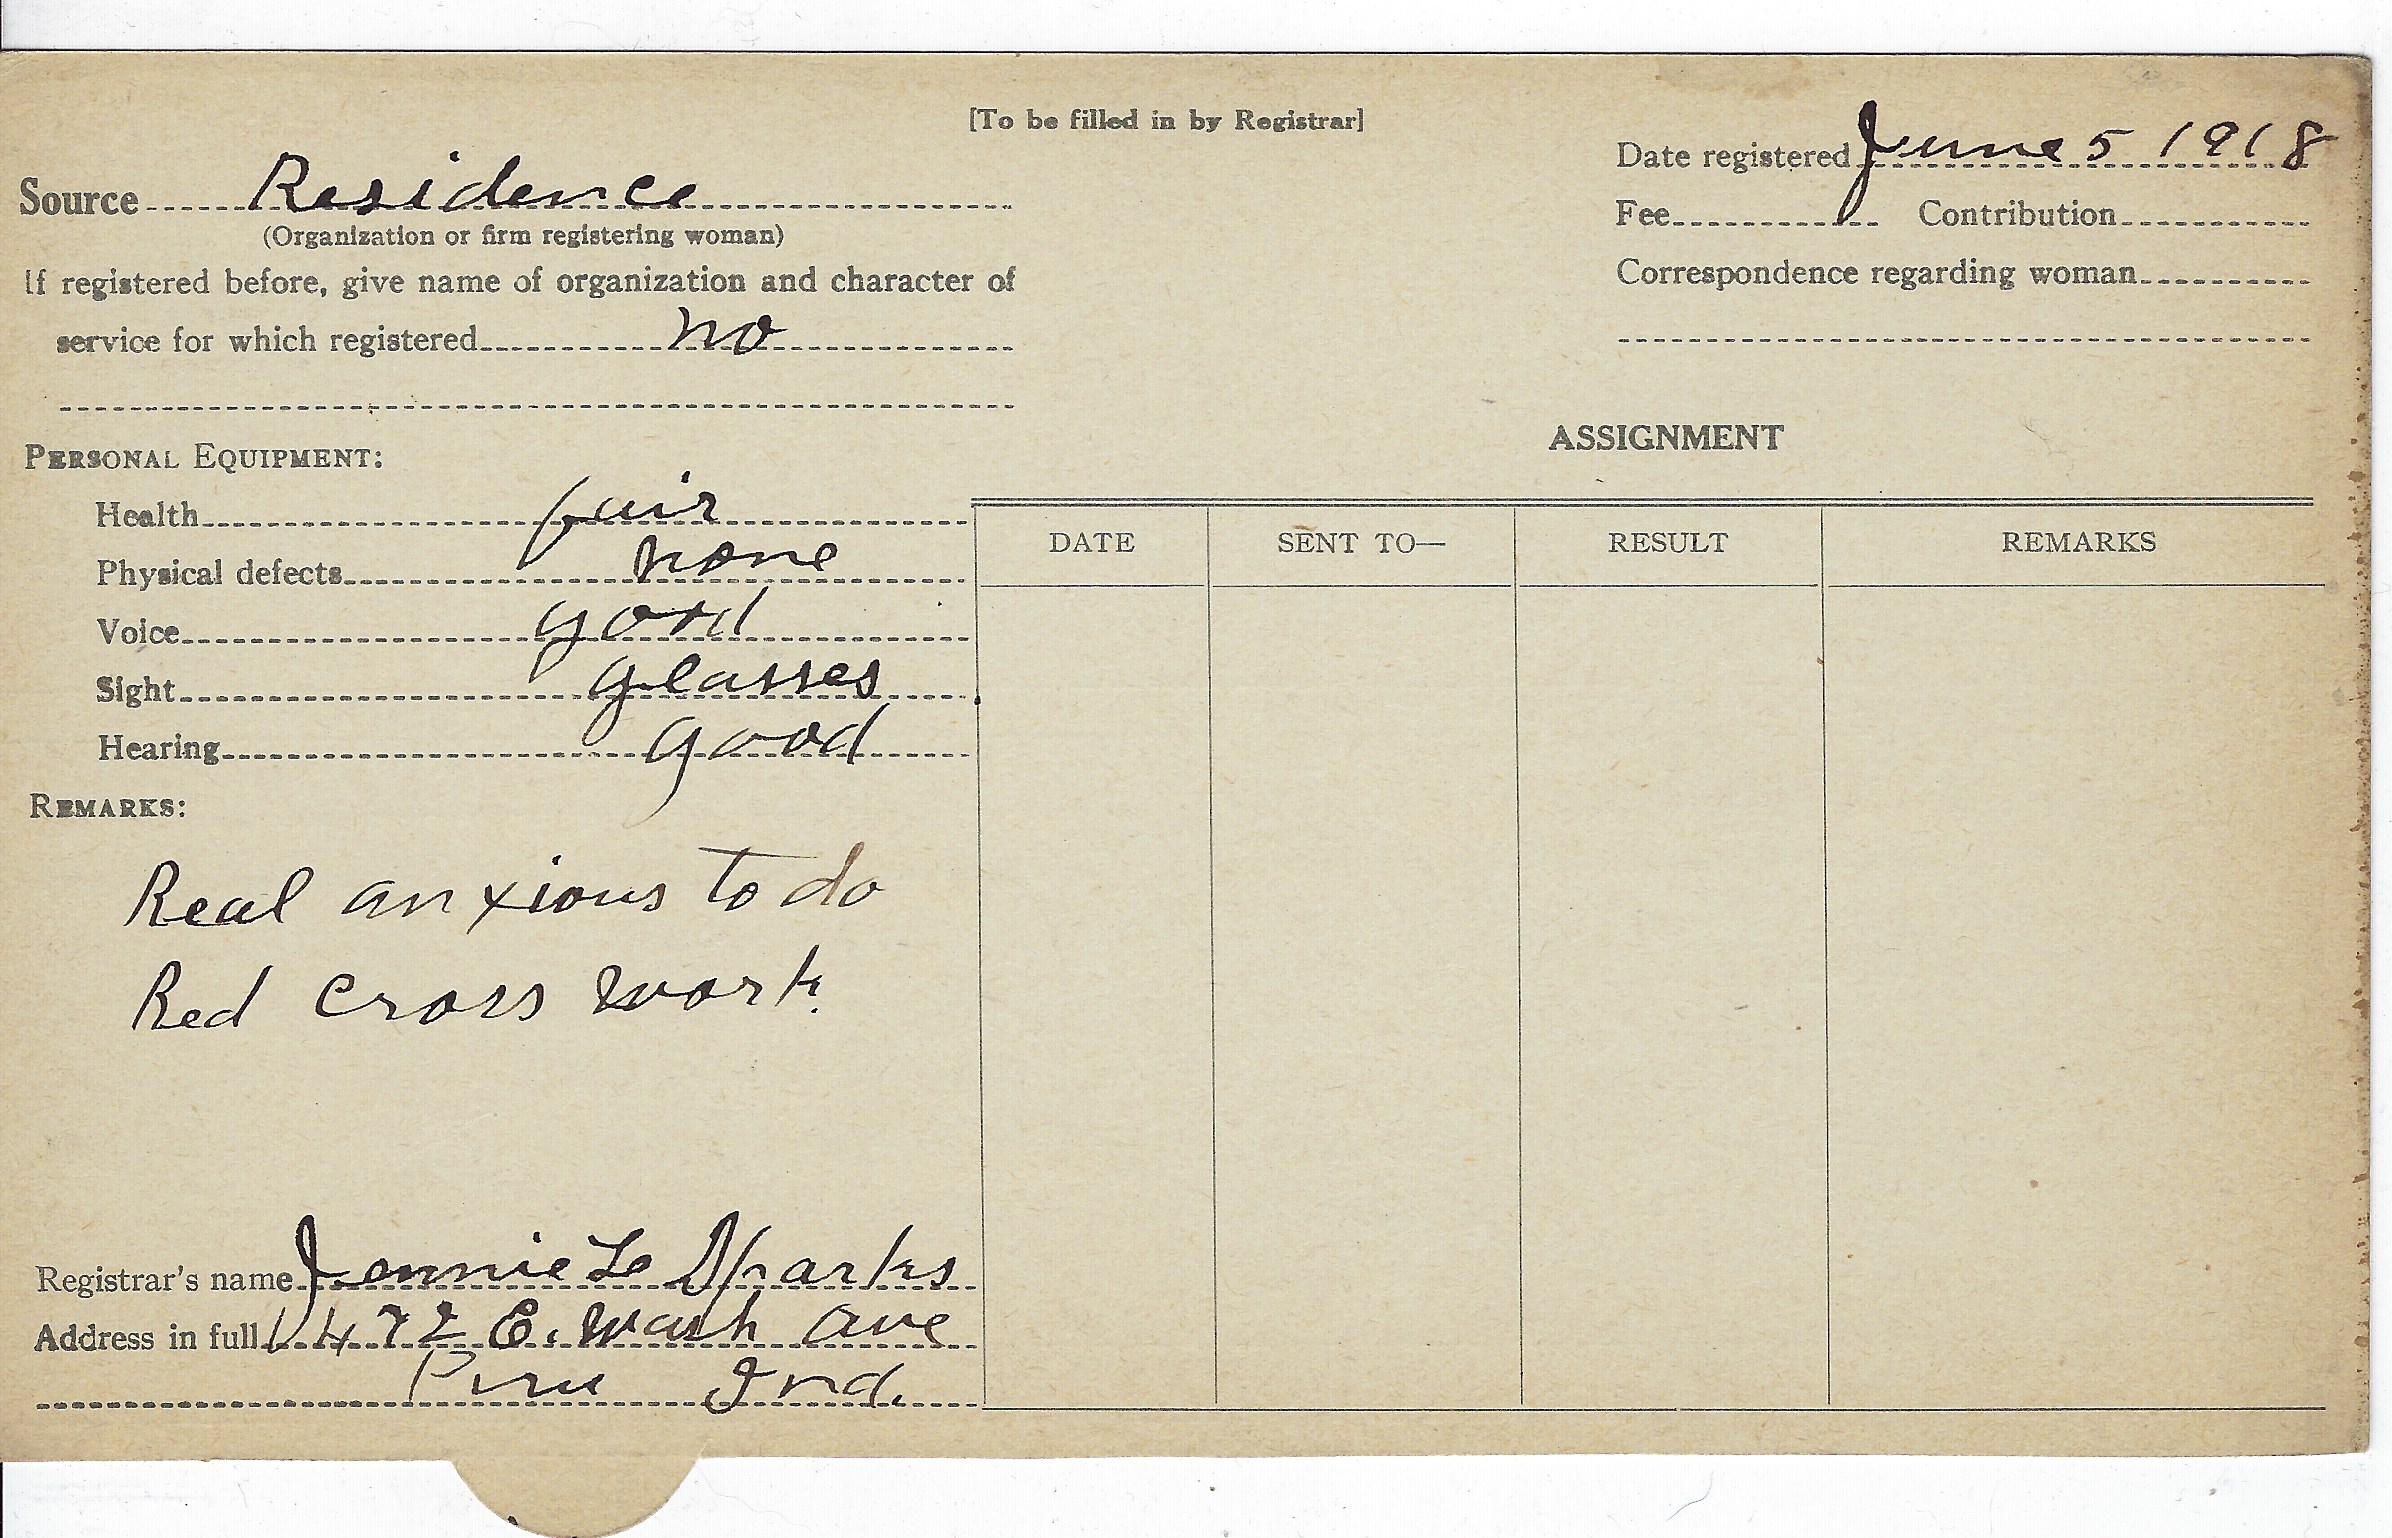 [To be filled in by Registrar]
Date registered June 5 1918
Source Residence
(Organization or firm registering woman)
Fee Contribution
If registered before, give name of organization and character of
service for which registered no
Correspondence regarding woman
PERSONAL EQUIPMENT:
Health fair
Physical defects none
Voice good
Sight glasses
Hearing good
REMARKS:
Real anxious to do
Red Cross work.
Registrar's name Jennie L Sparks
Address in full 472 E. Wash Ave
Peru Ind.
ASSIGNMENT
DATE SENT TO— RESULT REMARKS